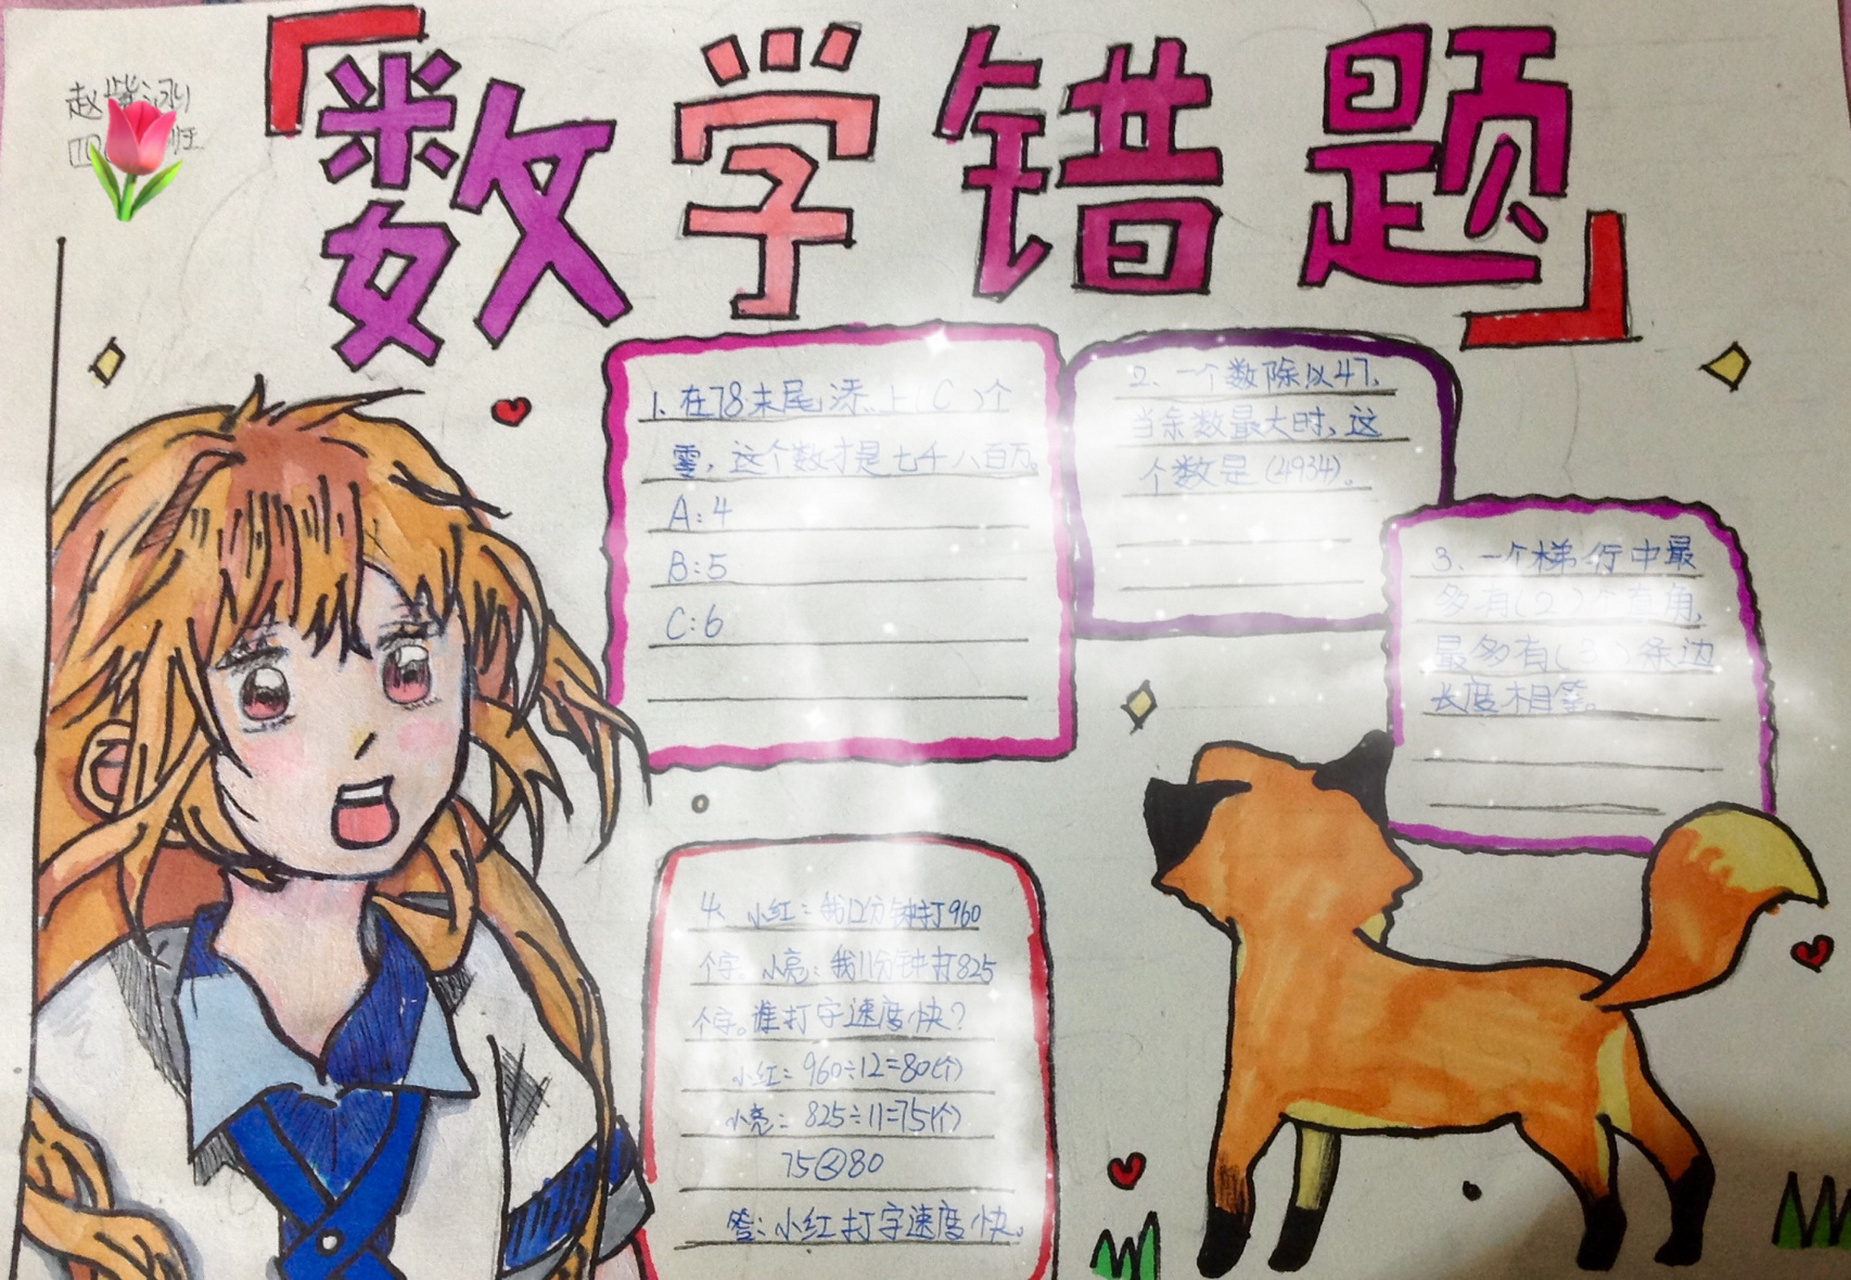 赵紫泓
四 班
「数学错题」
1、在78末尾添上(C)个
零,这个数才是七千八百万。
A:4
B:5
C:6
2、一个数除以47,
当余数最大时,这
个数是(4934)。
3、一个梯行中最
多有(2)个直角,
最多有(3)条边
长度相等。
4、小红:我12分钟打960
个字。小亮:我11分钟打825
个字。谁打字速度快?
小红:960÷12=80(个)
小亮:825÷11=75(个)
75<80
答:小红打字速度快。